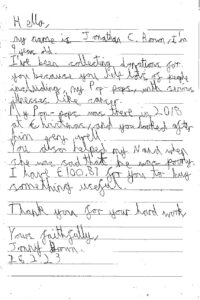 Hello,
my name is Jonathan C. Brown, I'm
9 year old.
I've been collecting donations for
you because you help lots of people
including my Pop-pops, with serious
illnesses like cancer.
My Pop-pops was there in 2018
at Christmas, and you looked after
him very well.
You also helped my Nana when
she was sad that he was poorly.
I have £100.81 for you to buy
something useful.
Thank you for your hard work
Yours faithfully,
Jonny Brown.
26 2 23